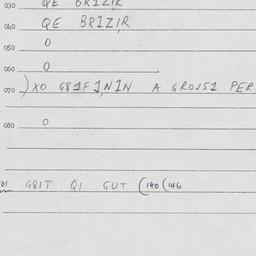 030 QE BRIZIR
040 QE BRIZIR
050 O
060 O
070 )XO G81F1,N1N A GROUS1 PER
080 O
01 G81T Q1 GUT (140 (146